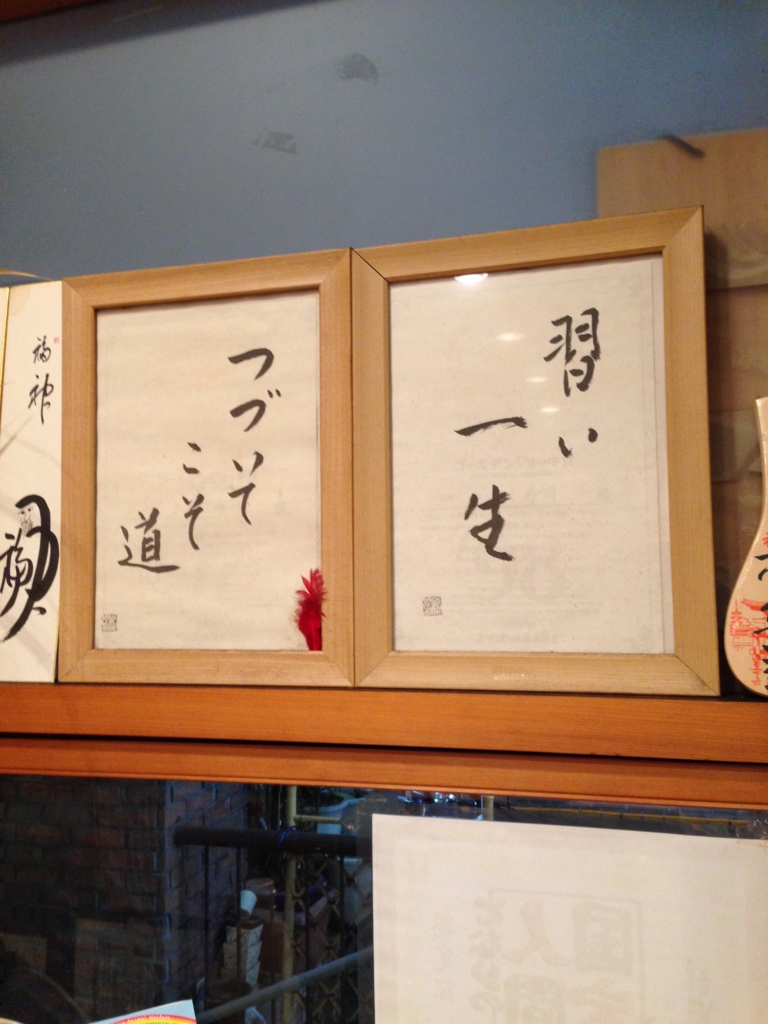 習い
一生
つづいて
こそ
道
福神
福